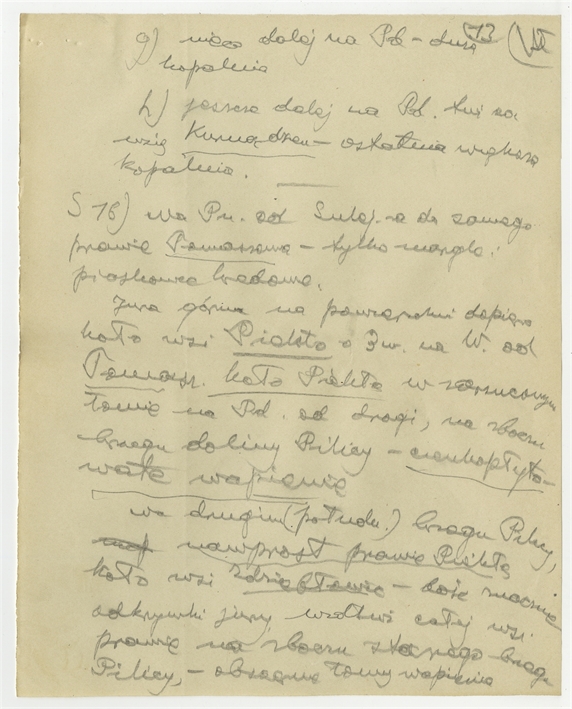 73 VII
g) nieco dalej na Pd – duża
kopalnia
h) jeszcze dalej na Pd. tuż za
wsią Kurnądzem – ostatnia większa
kopalnia.
S 16) Na Pn. od Sulej-a do samego
prawie Tomaszowa – tylko margle i
piaskowce kredowe.
Jura górna na powierzchni dopiero
koło wsi Piekło o 3 w. na W. od
Tomasz. koło Piekła w zarzuconym
łomie na Pd. od drogi, na zboczu
brzegu doliny Pilicy – cienkopłyto-
wate wapienie
na drugim (połudn.) brzegu Pilicy,
nawprost prawie Piekła
koło wsi – dość znaczne
odkrywki jury wzdłuż całej wsi
prawie na zboczu starego brzegu
Pilicy, – obszerne łomy wapienia